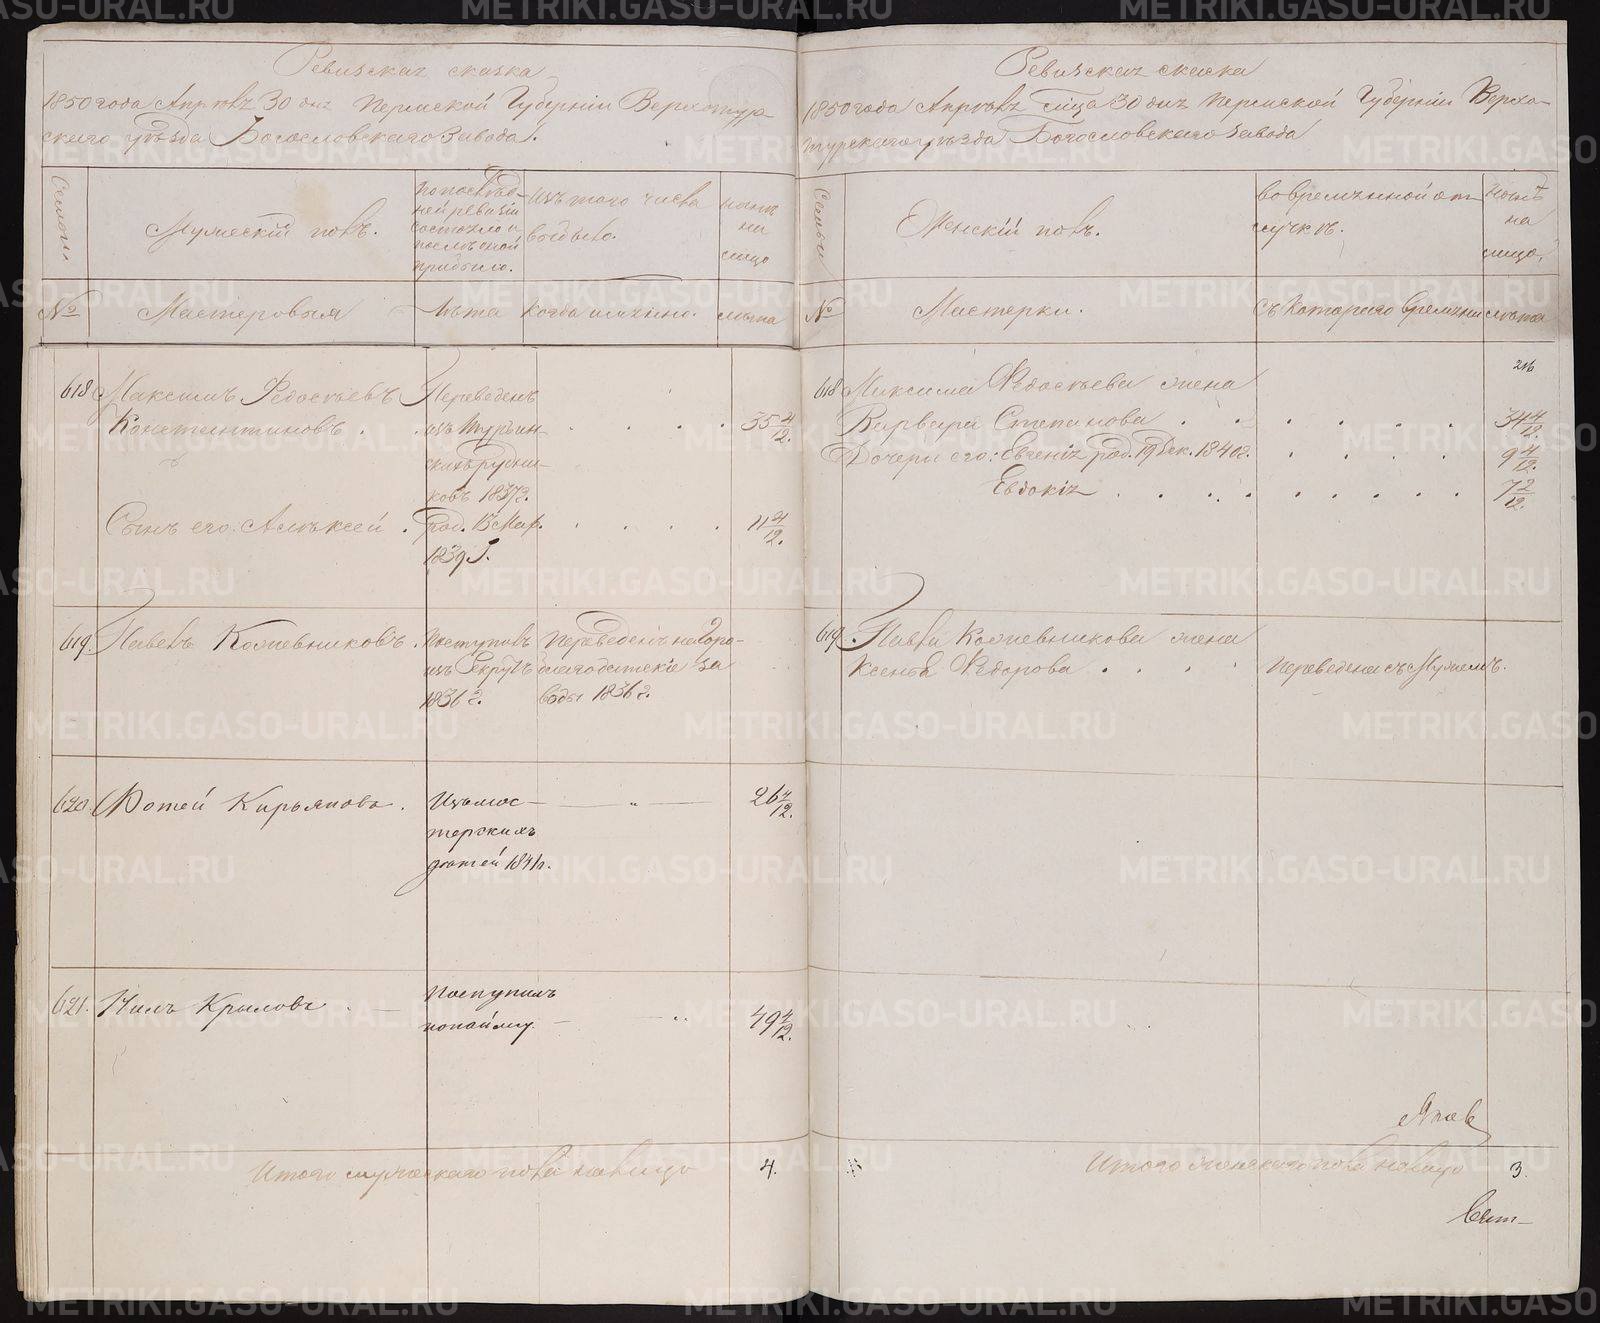 Ревизская сказка
1850 года Апреля 30 дня Пермской Губернии Верхотур-
скаго уезда Богословскаго Завода.
Семьи
Мужескiй полъ.
По послед-
ней ревизiи
состояло и
после оной
прибыло.
Изъ того числа
выбыло.
ныне
на
лицо
№
Мастеровыя
Лета
Когда именно.
лета
618
Максимъ Федосеевъ
Константиновъ
Переведенъ
изъ Турьин-
скихъ рудни-
ковъ 1837 г.
35 4/12.
Сынъ его: Алексей
род. 15 Мар.
1839 г.
11 4/12.
619. Павелъ Кожевниковъ.
Поступилъ
изъ Рекрутъ
1836 г.
Переведенъ на Горо-
благодатскiе за
воды 1836 г.
620. Фотей Кирьяновъ.
Изъ мас-
терскихъ
детей 1841 г.
26 4/12.
621. Нилъ Крыловъ
Поступилъ
по найму.
49 4/12.
Итого мужескаго пола налицо 4.
Ревизская сказка
1850 года Апреля м-ца 30 дня Пермской Губернiи Верхо-
турскаго уезда Богословскаго Завода
Семьи
Женскiй полъ.
во временной от
лучке.
ныне
на
лицо.
№
Мастерки.
Съ котораго времени
лета
216
618
Максима Федосеева жена
Варвара Степанова
34 4/12.
Дочери его: Евгенiя род. 19 Дек. 1840 г.
9 4/12.
Евдокiя
7 2/12.
619
Павла Кожевникова жена
Ксенья Федорова
Переведена съ Мужемъ.
Итого женскаго пола налицо 3.